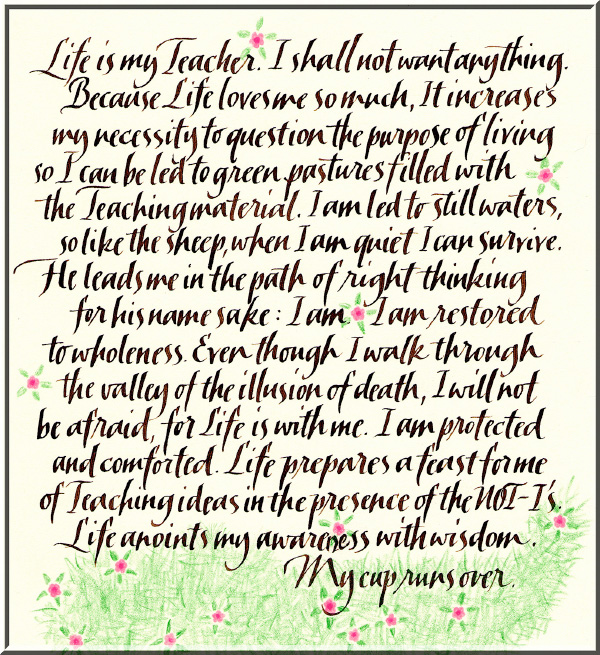 Life is my Teacher. I shall not want anything.
Because Life loves me so much, It increases
my necessity to question the purpose of living
so I can be led to green pastures filled with
the Teaching material. I am led to still waters,
so like the sheep, when I am quiet I can survive.
He leads me in the path of right thinking
for his name sake: I am I am restored
to wholeness. Even though I walk through
the valley of the illusion of death, I will not
be afraid, for Life is with me. I am protected
and comforted. Life prepares a feast for me
of Teaching ideas in the presence of the NOT-I's.
Life anoints my awareness with wisdom.
My cup runs over.